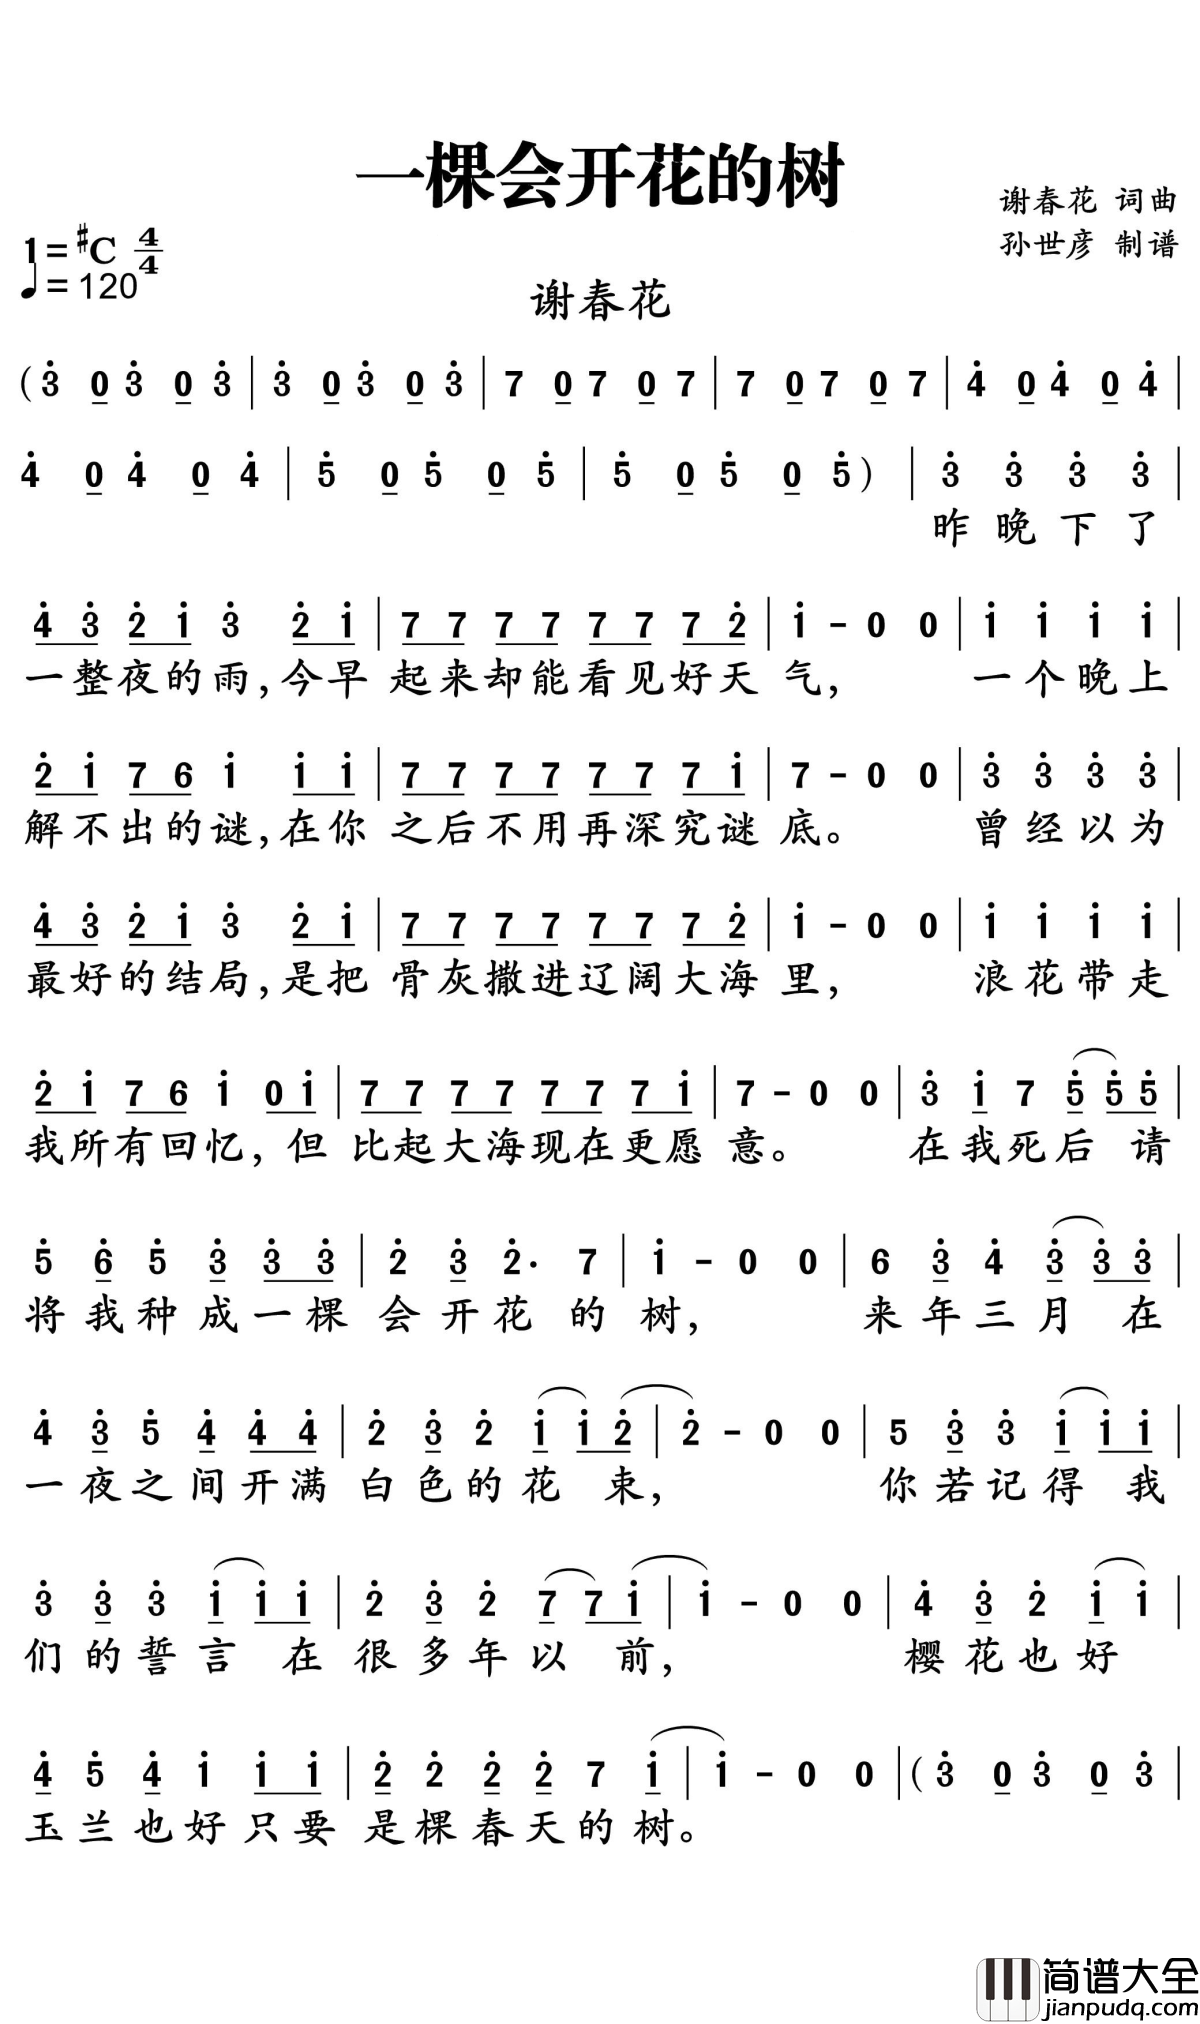 一棵会开花的树
谢春花 词曲
1=#C 4/4
孙世彦 制谱
♩=120
谢春花
(3 0 3 0 3 | 3 0 3 0 3 | 7 0 7 0 7 | 7 0 7 0 7 | 4 0 4 0 4 |
4 0 4 0 4 | 5 0 5 0 5 | 5 0 5 0 5 ) | 3 3 3 3 |
昨晚下了
4 3 2 1 3 2 1 | 7 7 7 7 7 7 7 2 | 1 - 0 0 | 1 1 1 1 |
一整夜的雨,今早 起来却能看见好天 气, 一个晚上
2 1 7 6 1 1 1 | 7 7 7 7 7 7 7 1 | 7 - 0 0 | 3 3 3 3 |
解不出的谜,在你 之后不用再深究谜 底。 曾经以为
4 3 2 1 3 2 1 | 7 7 7 7 7 7 7 2 | 1 - 0 0 | 1 1 1 1 |
最好的结局,是把 骨灰撒进辽阔大海 里, 浪花带走
2 1 7 6 1 0 1 | 7 7 7 7 7 7 7 1 | 7 - 0 0 | 3 1 7 5 5 5 |
我所有回忆,但 比起大海现在更愿 意。 在我死后 请
5 6 5 3 3 3 | 2 3 2· 7 | 1 - 0 0 | 6 3 4 3 3 3 |
将我种成一棵 会开花的 树, 来年三月 在
4 3 5 4 4 4 | 2 3 2 1 1 2 | 2 - 0 0 | 5 3 3 1 1 1 |
一夜之间开满 白色的花 束, 你若记得 我
3 3 3 1 1 1 | 2 3 2 7 7 1 | 1 - 0 0 | 4 3 2 1 1 |
们的誓言 在 很多年以 前, 樱花也好
4 5 4 1 1 1 | 2 2 2 2 7 1 | 1 - 0 0 | (3 0 3 0 3 |
玉兰也好只要 是棵春天的树。
简谱大全
jianpudq.com